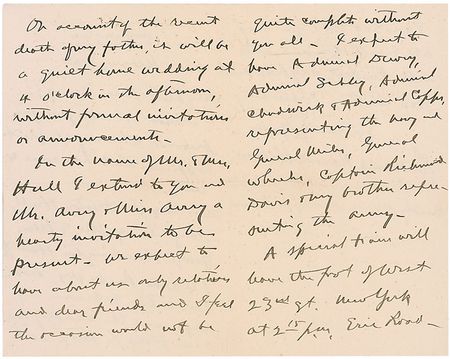 On account of the recent
death of my father, it will be
a quiet home wedding at
4 o'clock in the afternoon,
without formal invitations
or announcements –
In the name of Mr. & Mrs.
Hull I extend to you and
Mr. Avery & Miss Avery a
hearty invitation to be
present – We expect to
have about us only relatives
and dear friends and I feel
the occasion would not be
quite complete without
you all – I expect to
have Admiral Dewey,
Admiral Schley, Admiral
Chadwick & Admiral Capps,
representing the navy and
General Miles, General
Wheeler, Captain Richmond
Davis & my brother repre-
senting the army –
A special train will
leave the foot of West
23rd St. New York
at 2 15 p.m. Erie Road –